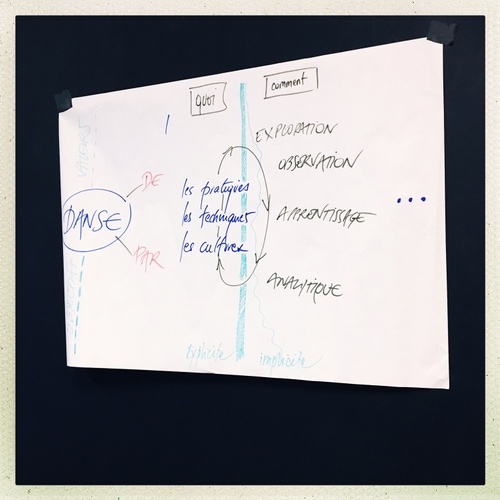 quoi
comment
EXPLORATION
OBSERVATION
DE
les pratiques
DANSE
les techniques
APPRENTISSAGE
...
les cultures
PAR
ANALYTIQUE
explicite
implicite